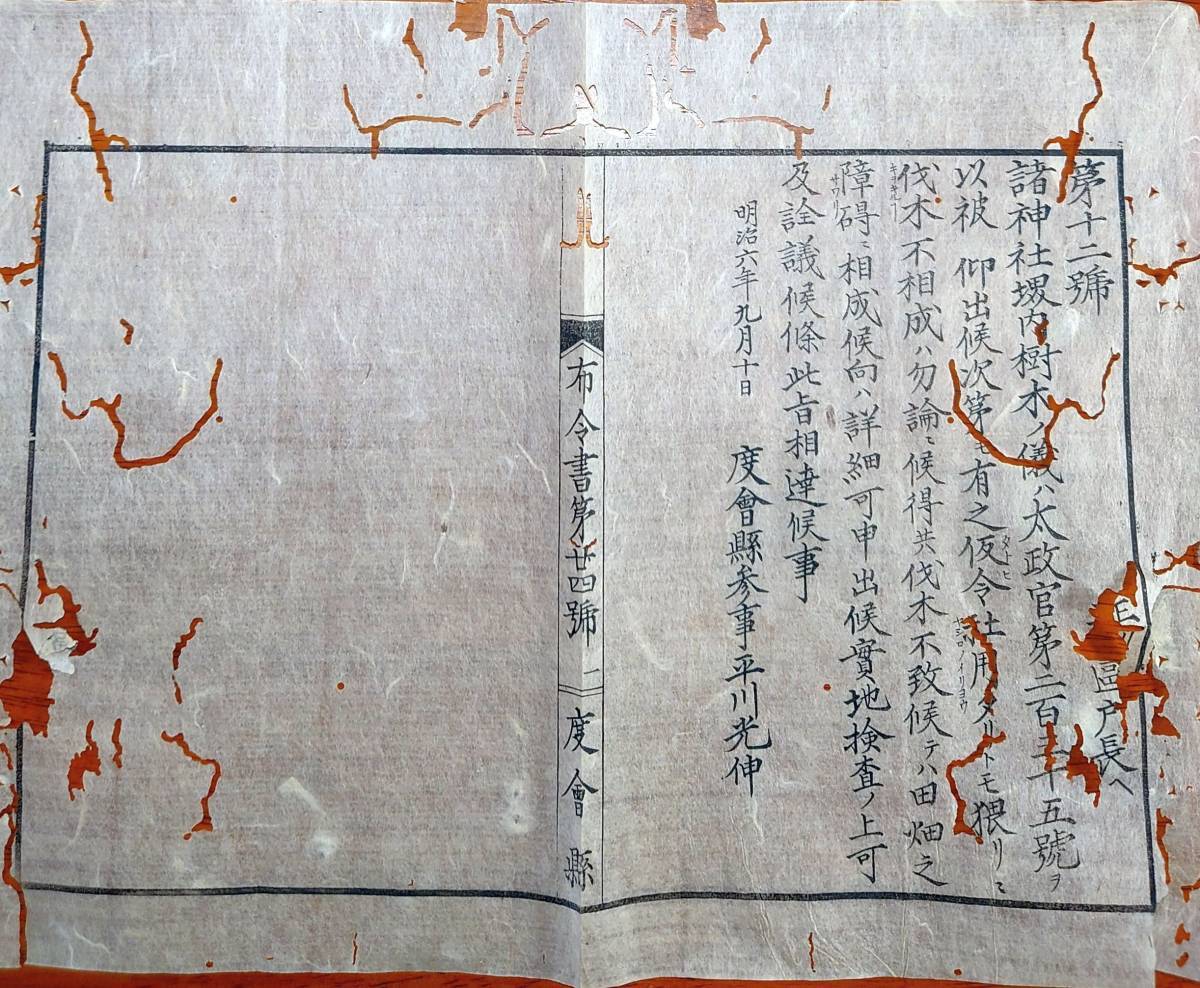 第十二號
區戸長ヘ
諸神社堺内樹木ノ儀ハ太政官第二百三十五號ヲ
以被 仰出候次第モ有之仮令社用タリトモ猥リニ
伐木不相成ハ勿論ニ候得共伐木不致候テハ田畑之
障碍ニ相成候向ハ詳細可申出候實地検査ノ上可
及詮議候條此旨相達候事
明治六年九月十日
度會縣参事平川光伸
布令書第廿四號 一 度會縣